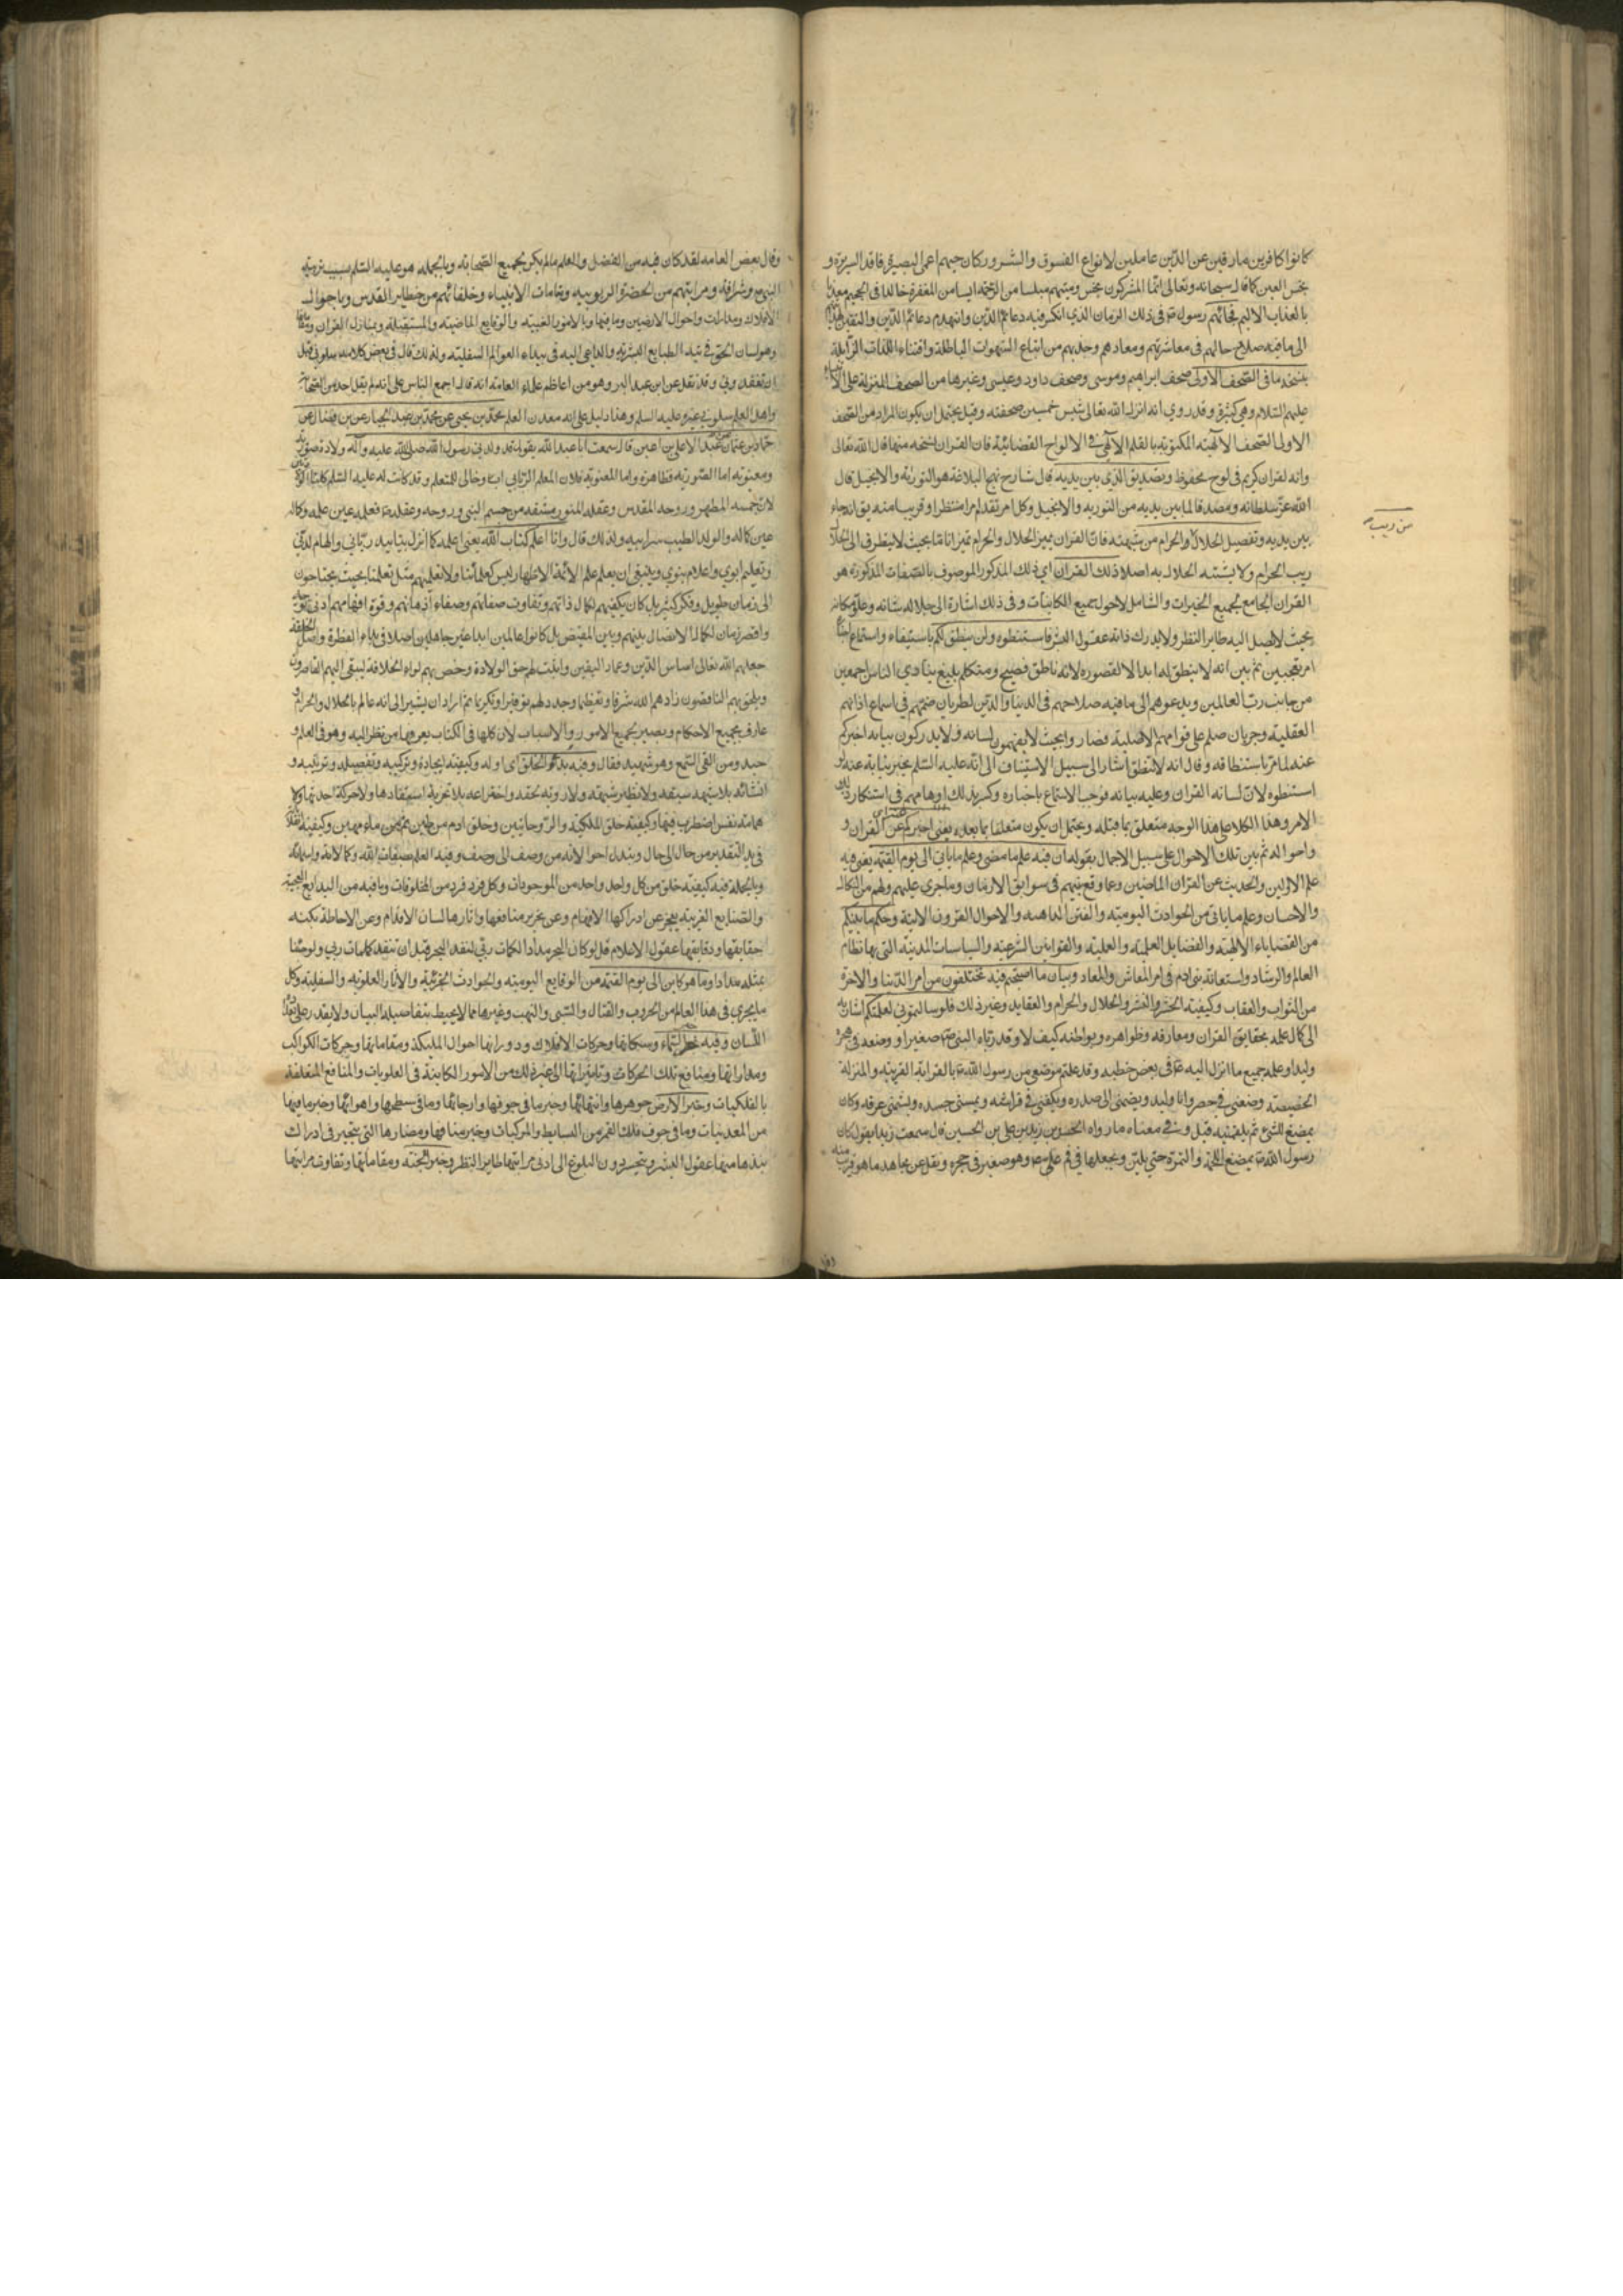 كانوا كافرين مارقين عن الدين عاملين لانواع الفسوق والشرور وكان حيهم اعمى البصيرة فاقد السريرة و
نجس العين كما قال سبحانه وتعالى انما المشركون نجس وميتهم مبلسا من الرحمة ايسا من المغفرة خالدا فى الجحيم معذبا
بالعذاب الاليم فجاءهم رسول الله ص فى ذلك الزمان الذي انكسر فيه دعائم الدين وانهدم دعائم الدين واليقين
الى ما فيه صلاح حالهم فى معاشرتهم ومعادهم وجذبهم من اتباع الشهوات الباطلة واقتناء اللذات الزائلة
بنسخه ما فى الصحف الاولى صحف ابراهيم وموسى وصحف داود وعيسى وغيرها من الصحف المنزلة على الانبياء
عليهم السلام وهي كثيرة وقد روي انه انزل الله تعالى شيث خمسين صحيفة وقيل يحتمل ان يكون المراد من الصحف
الاولى الصحف الالهية المكتوبة بالقلم الالهي في الالواح القضائية فان القران نسخة منها قال الله تعالى
وانه لقران كريم فى لوح محفوظ وتصديق الذي بين يديه قال شارح نهج البلاغة هو التورية والانجيل قال
الله عز سلطانه ومصدقا لما بين يديه من التورية والانجيل وكل امر تقدم امرا منتظرا او قريبا منه يقال انه جاء
بين يديه وتفصيل الحلال والحرام من شبهته فان القران يميز الحلال والحرام تميزا تاما بحيث لا يتطرف الى الحلال
من ريب
ريب الحرام ولا يشتبه الحلال به اصلا ذلك القران اي ذلك المذكور الموصوف بالصفات المذكورة هو
القران الجامع لجميع الخيرات والشامل لاحوال جميع الكاينات وفى ذلك اشارة الى جلالة شانه وعلو مكانه
بحيث لا يصل اليه طاير النظر ولا يدرك ذاته عقول البشر فاستنطقوه ولن ينطق لكم باستيفاء واستماع
امر تعجيبن ثم بين انه لا ينطق لهم ابدا لا لقصوره لانه ناطق فصيح ومتكلم بليغ ينادي الناس اجمعين
من جانب رب العالمين ويدعوهم الى ما فيه صلاحهم فى الدنيا والدين لطريان صممهم في اسماع اذانهم
العقلية وجريان صلم على قوامهم الاصلية فصاروا بحيث لا يفهمون لسانه ولا يدركون بيانه اخبركم
عنه لما امر باستنطاقه وقال انه لا ينطق اشار الى سبيل الاستيناف الى انه عليه السلم يخبر بنيابة عنه
استنطقوه لان لسانه القران وعليه بيانه فوجب الاستماع باخباره وكسر بذلك اوهامهم في استنكار ذلك
الامر وهذا الكلام على هذا الوجه متعلق بما قبله ويحتمل ان يكون متعلقا بما بعده يعنى اخبركم عن القران و
واحواله ثم بين تلك الاحوال على سبيل الاجمال بقوله ان فيه علم ما مضى وعلم ما ياتي الى يوم القيمة يعني فيه
علم الاولين والحديث عن القران الماضين وعما وقع بينهم في سوابق الازمان وما جري عليهم ولهم من النكال
والاحسان وعلم ما ياتى من الحوادث اليومية والفتن الداهية والاحوال القرون الاتية وحكم ما بينكم
من القضاياء الالهية والفضايل العلمية والعملية والقوانين الشرعية والسياسات المدنية التي بها نظام
العالم والرشاد واستعانة بنو ادم فى امر المعاش والمعاد وبيان ما اصبحتم فيه تختلفون من امر الدنيا والاخرة
من الثواب والعقاب وكيفية الحشر والنشر والحلال والحرام والعقايد وغير ذلك فلو سالتموني لعلمتكم اشارة
الى كمال علمه بحقايق القران ومعارفه وظواهره وبواطنه كيف لا وقد رباه النبي ص صغيرا ووضعه فى حجره
وليدا وعلمه جميع ما انزل اليه ع فى بعض خطبه وقد علمتم موضعي من رسول الله ص بالقرابة القريبة والمنزلة
الخصيصة وضعني في حجره وانا وليد ويضمني الى صدره ويكنفني فى فراشه ويمسني جسده ويشمني عرفه وكان
يمضغ الشئ ثم يلقمنيه قيل وفي معناه ما رواه الحسن بن زيد بن علي بن الحسين قال سمعت زيدا يقول كان
رسول الله ص يمضغ اللحمة والتمرة حتى يلين ويجعلها في فم علي ع وهو صغير فى حجره ونقل عن مجاهد ما هو قريب منه
وقال بعض العامه لقد كان فيه من الفضل والعلم ما لم يكن لجميع الصحابة وبالجملة هو عليه السلم بسبب تربية
النبي ص وشرافة ومراتبهم من الحضرة الربوبية ومقامات الانبياء وخلفائهم من حظاير القدس وباحوال
الافلاك ومدارات واحوال الارضين وما فيها وبالامور الغيبية والوقايع الماضية والمستقبلة وبمنازل القران
وهو لسان الحق في تيه الطبايع البشرية والداعي اليه فى بيداء العوالم السفلية ولذلك قال فى بعض كلامه سلوني قبل
ان تفقدوني وقد نقل عن ابن عبد البر وهو من اعاظم علماء العامة انه قال اجمع الناس على انه لم يقل احد من الصحابة
واهل العلم سلوني غيره عليه السلم وهذا دليل على انه معدن العلم محمد بن يحيى عن محمد بن عبد الجبار عن ابن فضال عن
حماد بن عثمان عن عبد الاعلى بن اعين قال سمعت ابا عبد الله يقول قد ولدني رسول الله صلى الله عليه وآله ولادة صورية
ومعنوية اما الصورية فظاهرة واما المعنوية فلان المعلم الرباني اب وخالى للمتعلم وقد كانت له عليه السلم كلتا الولادتين
لان جسمه المطهر وروحه المقدس وعقله المنور مشتقه من جسم النبي وروحه وعقله ع فعلمه عين علمه وكماله
عين كماله والولد الطيب سر ابيه ولذلك قال وانا اعلم كتاب الله يعني اعلمه كما انزل بتاييد رباني والهام لدني
وتعليم ابوي واعلام نبوي وينبغي ان يعلم علم الائمة الاطهار ليس كعلمائنا ولا تعليمهم مثل تعلمنا بحيث يحتاجون
الى زمان طويل وفكر كثير بل كان يكفيهم لكمال ذاتهم وتفاوت صفاتهم وصفاء اذهانهم وقوة افهامهم ادنى
واقصر زمان لكمال الاتصال بينهم وبين المفيض بل كانوا عالمين ابدا غير جاهلين اصلا في بداء الفطرة واصل الخلقة
جعلهم الله تعالى اساس الدين وعماد اليقين واثبت لهم حق الولادة وخص بهم لواء الخلافة ليبقى اليهم القاصرون
ويلحق بهم الناقصون زادهم الله شرفا وتعظيما وجدد لهم توقيرا وتكريما ثم اراد ان يشير الى انه عالم بالحلال والحرام
عارف بجميع الاحكام وبصير بجميع الامور والاسباب لان كلها في الكتاب يعرفها من نظر اليه وهو في العلم
حيد ومن القى السمع وهو شهيد فقال وفيه بدؤ الخلق اى اوله وكيفية ايجاده وتركيبه وتفصيله وترتيبه و
انشائه بلا شبه سبقه ولا نظير شبهه ولا روية تحقه واختراعه بلا تجربة استفادها ولا حركة احدثها ولا
همامة نفس اضطرب فيها وكيفية خلق الملئكة والروحانيين وخلق ادم من طين ثم من ماء مهين وكيفية
فى يد التقدير من حال الى حال وتبدل احوالاته من وصف الى وصف وفيه العلم بصفات الله وكمالاته واسمائه
وبالجملة فيه كيفية خلق من كل واحد واحد من الموجودات وكل فرد فرد من المخلوقات وما فيه من البدايع العجيبة
والصنايع الغريبة يعجز عن ادراكها الافهام وعن تحرير منافعها واثارها لسان الاقلام وعن الاحاطة بكنه
حقايقها ودقايقها عقول الاعلام قل لو كان البحر مدادا لكلمات ربي لنفد البحر قبل ان تنفد كلمات ربي ولو جئنا
بمثله مددا وما هو كاين الى يوم القيمة من الوقايع اليومية والحوادث الجزئية والاثار العلوية والسفلية وكل
ما يجري فى هذا العالم من الحروب والقتال والسبي والنهب وغيرها مما لا يحيط بتفاصيله البيان ولا يقدر على
اللسان وفيه خبر السماء وسكانها وحركات الافلاك ودوراتها احوال الملئكة ومقاماتها وحركات الكواكب
ومداراتها ومنافع تلك الحركات وتاثيراتها الى غير ذلك من الامور الكاينة فى العلويات والمنافع المتعلقة
بالفلكيات وخبر الارض جوهرها وانتهائها وخبر ما فى جوفها وارجائها وما فى سطحها واهوائها وخبر ما فيها
من المعدنيات وما فى جوف فلك القمر من البسايط والمركبات وخبر منافعها ومضارها التي يتحير فى ادراك
نبذها منها عقول البشر ويتحسرون البلوغ الى ادنى مراتبها طاير النظر وخبر الجنة ومقاماتها وتفاوت مراتبها